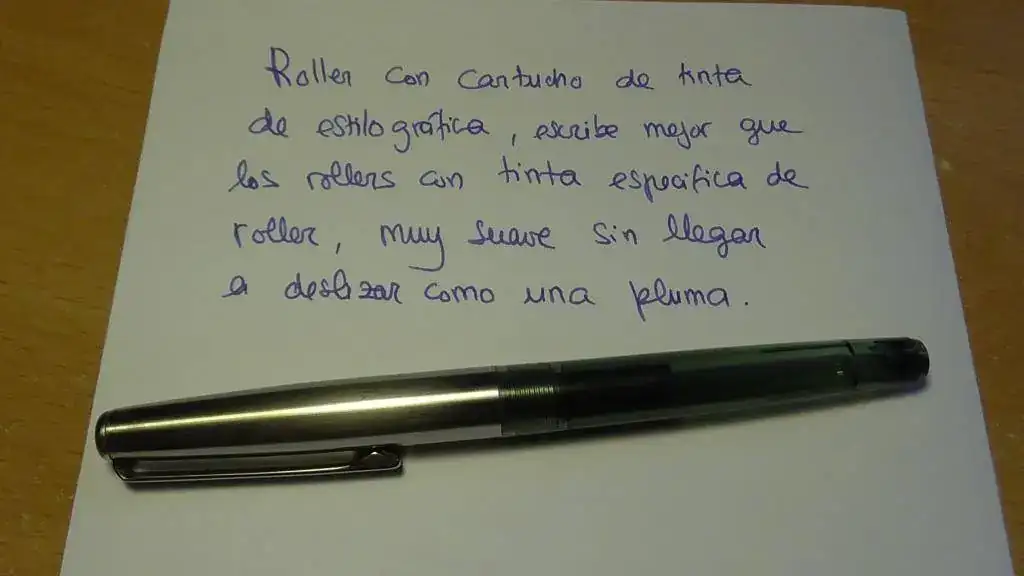 Roller con cartucho de tinta
de estilográfica, escribe mejor que
los rollers con tinta especifica de
roller, muy suave sin llegar
a deslizar como una pluma.